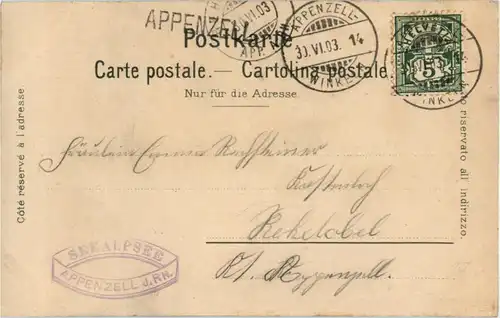 APPENZELL
APPENZELL-
30.VI.03. 14
WINKEL
Postkarte
Carte postale. — Cartolina postale.
Nur für die Adresse
HELVETIA
5
Côté réservé à l'adresse
Lato riservato all indirizzo.
Fräulein Emma Rechsteiner
Kastenloch
Rehetobel
Kt. Appenzell.
SEEALPSEE
APPENZELL J. RH.